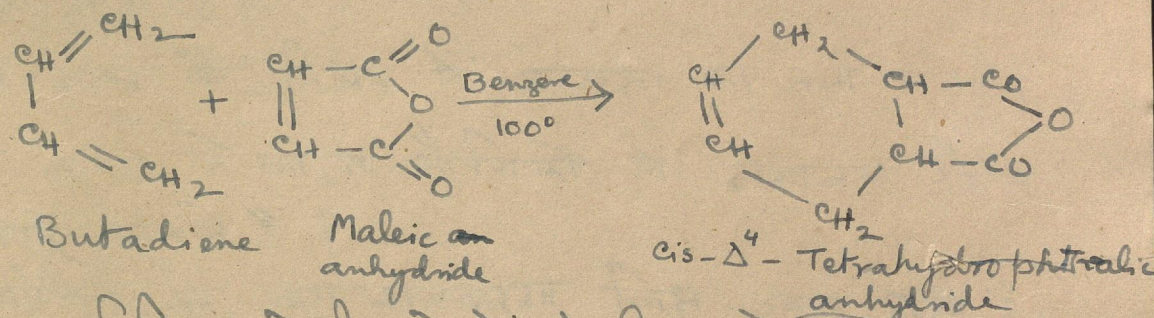 CH = CH2
CH = CH2
+
CH - C = O
O
CH - C = O
Benzene
100°
CH2
CH
CH
CH2
CH - CO
O
CH - CO
Butadiene
Maleic
anhydride
cis-Δ4- Tetrahydrophthalic
anhydride